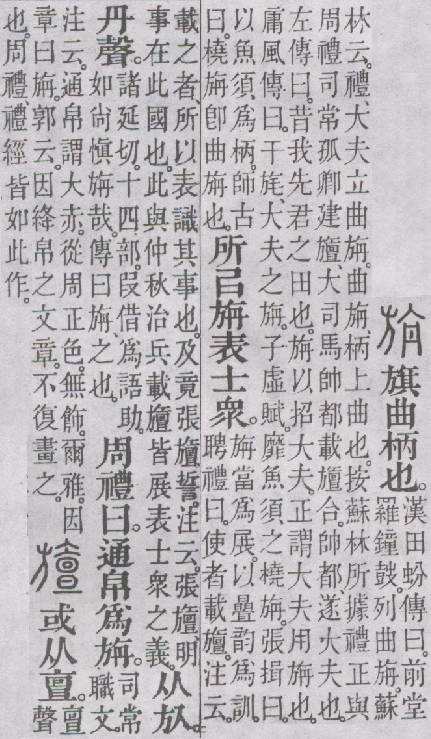 旃旗曲柄也。
漢田蚡傳曰。前堂
羅鐘鼓。列曲旃。蘇
林云。禮、大夫立曲旃。曲旃、柄上曲也。按蘇林所據禮正與
周禮司常孤卿建旜、大司馬帥都載旜合。帥都、遂大夫也。
左傳曰。昔我先君之田也。旃以招大夫。正謂大夫用旃也。
庸風傳曰。干旄、大夫之旃。子虛賦。靡魚須之橈旃。張揖曰。
以魚須爲柄。師古
曰。橈旃卽曲旃也。
所㠯旃表士衆。
旃當爲展。以曡韵爲訓。
聘禮曰。使者載旜。注云。
載之者、所以表識其事也。及竟張旜誓。注云。張旜明
事在此國也。此與仲秋治兵載旜皆展表士衆之義。
从㫃。
丹聲。
諸延切。十四部。叚借爲語助。
如尙愼旃哉。傳曰旃、之也。
周禮曰。通帛爲旃。
司常
職文
注云。通帛謂大赤。從周正色。無飾。爾雅。因
章曰旃。郭云。因絳帛之文章。不復畫之。
旜或从亶。
亶
聲
也。周禮、禮經皆如此作。